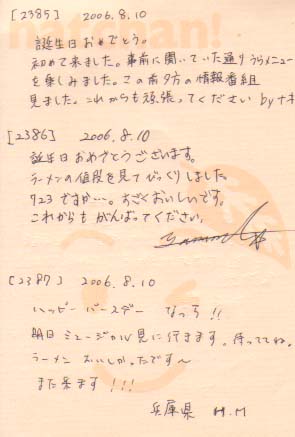 [2385] 2006.8.10
誕生日おめでとう。
初めて来ました。事前に聞いていた通りうらメニュー
を楽しみました。この前夕方の情報番組
見ました。これからも頑張ってください by ナオ
[2386] 2006.8.10
誕生日おめでとうございます。
ラーメンの値段を見てびっくりしました。
723ですが…。すごくおいしいです。
これからもがんばってください。
[2387] 2006.8.10
ハッピーバースデー なっち!!
明日ミュージカル見に行きます。待っててね。
ラーメンおいしかったです〜
また来ます!!!
兵庫県 H.M